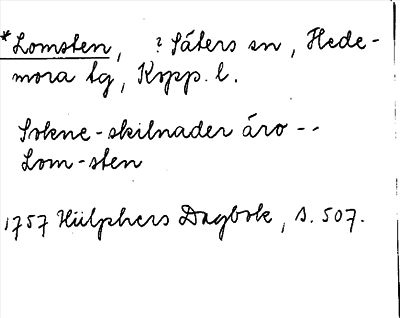 *Lomsten, ? Säters sn, Hede-
mora tg, Kopp. l.
Sokne-skilnader äro --
Lom-sten
1757 Hülphers Dagbok, s. 507.